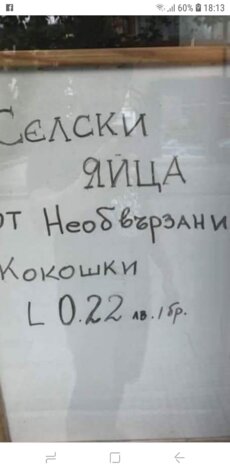 60% 18:13
СЕЛСКИ
ЯЙЦА
ОТ Необвързани
Кокошки
L 0.22 лв./бр.